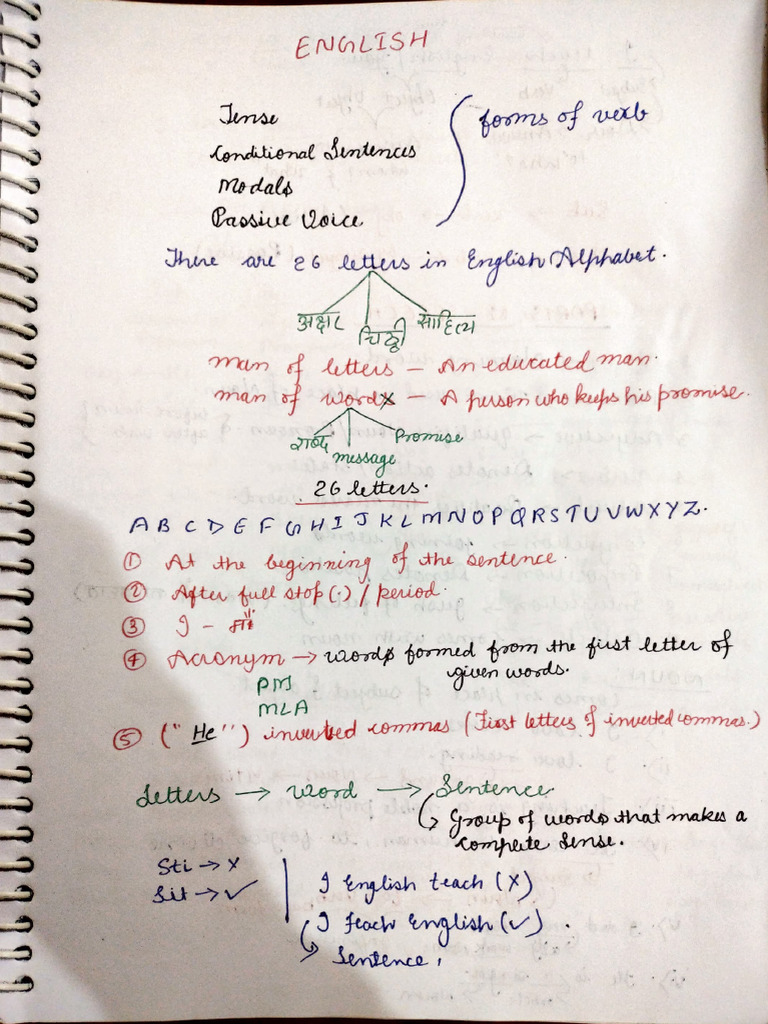 ENGLISH
Tense
Conditional Sentences
Modals
Passive Voice
forms of verb
There are 26 letters in English Alphabet.
अक्षर
चिट्ठी
साहित्य
man of letters – An educated man.
man of word – A person who keeps his promise.
शब्द
message
Promise
26 letters.
A B C D E F G H I J K L M N O P Q R S T U V W X Y Z.
① At the beginning of the sentence.
② After full stop (.) / period.
③ I – मैं
④ Acronym → words formed from the first letter of
given words.
PM
MLA
⑤ (" He ") inverted commas (First letters of inverted commas.)
Letters → word → Sentence
↳ Group of words that makes a
complete sense.
Sti → x
Sit → ✓
I English teach (X)
I teach English (✓).
↳ Sentence.